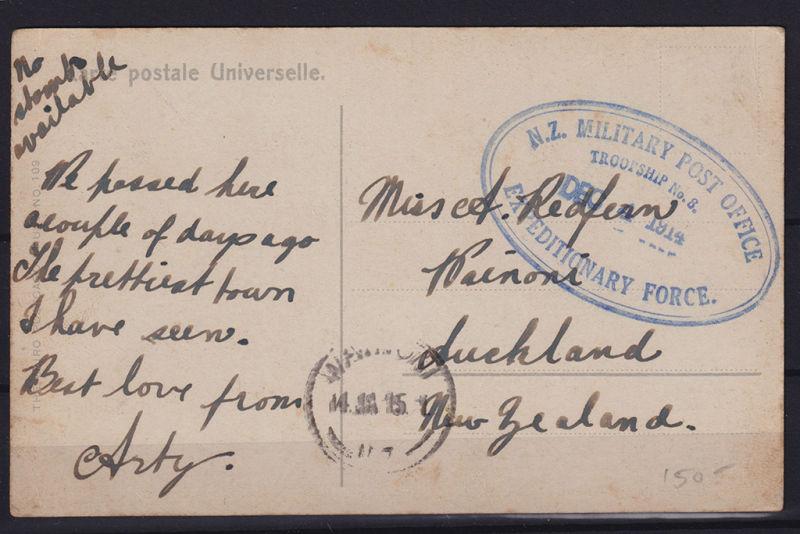 No
stamps
available
Carte postale Universelle.
We passed here
a couple of days ago
The prettiest town
I have seen.
Best love from
Arty.
Miss A. Redfern
Wainoni
Auckland
New Zealand.
N.Z. MILITARY POST OFFICE
TROOPSHIP No. 8.
DEC 1914
EXPEDITIONARY FORCE.
14 JA 15
150-
NO. 109